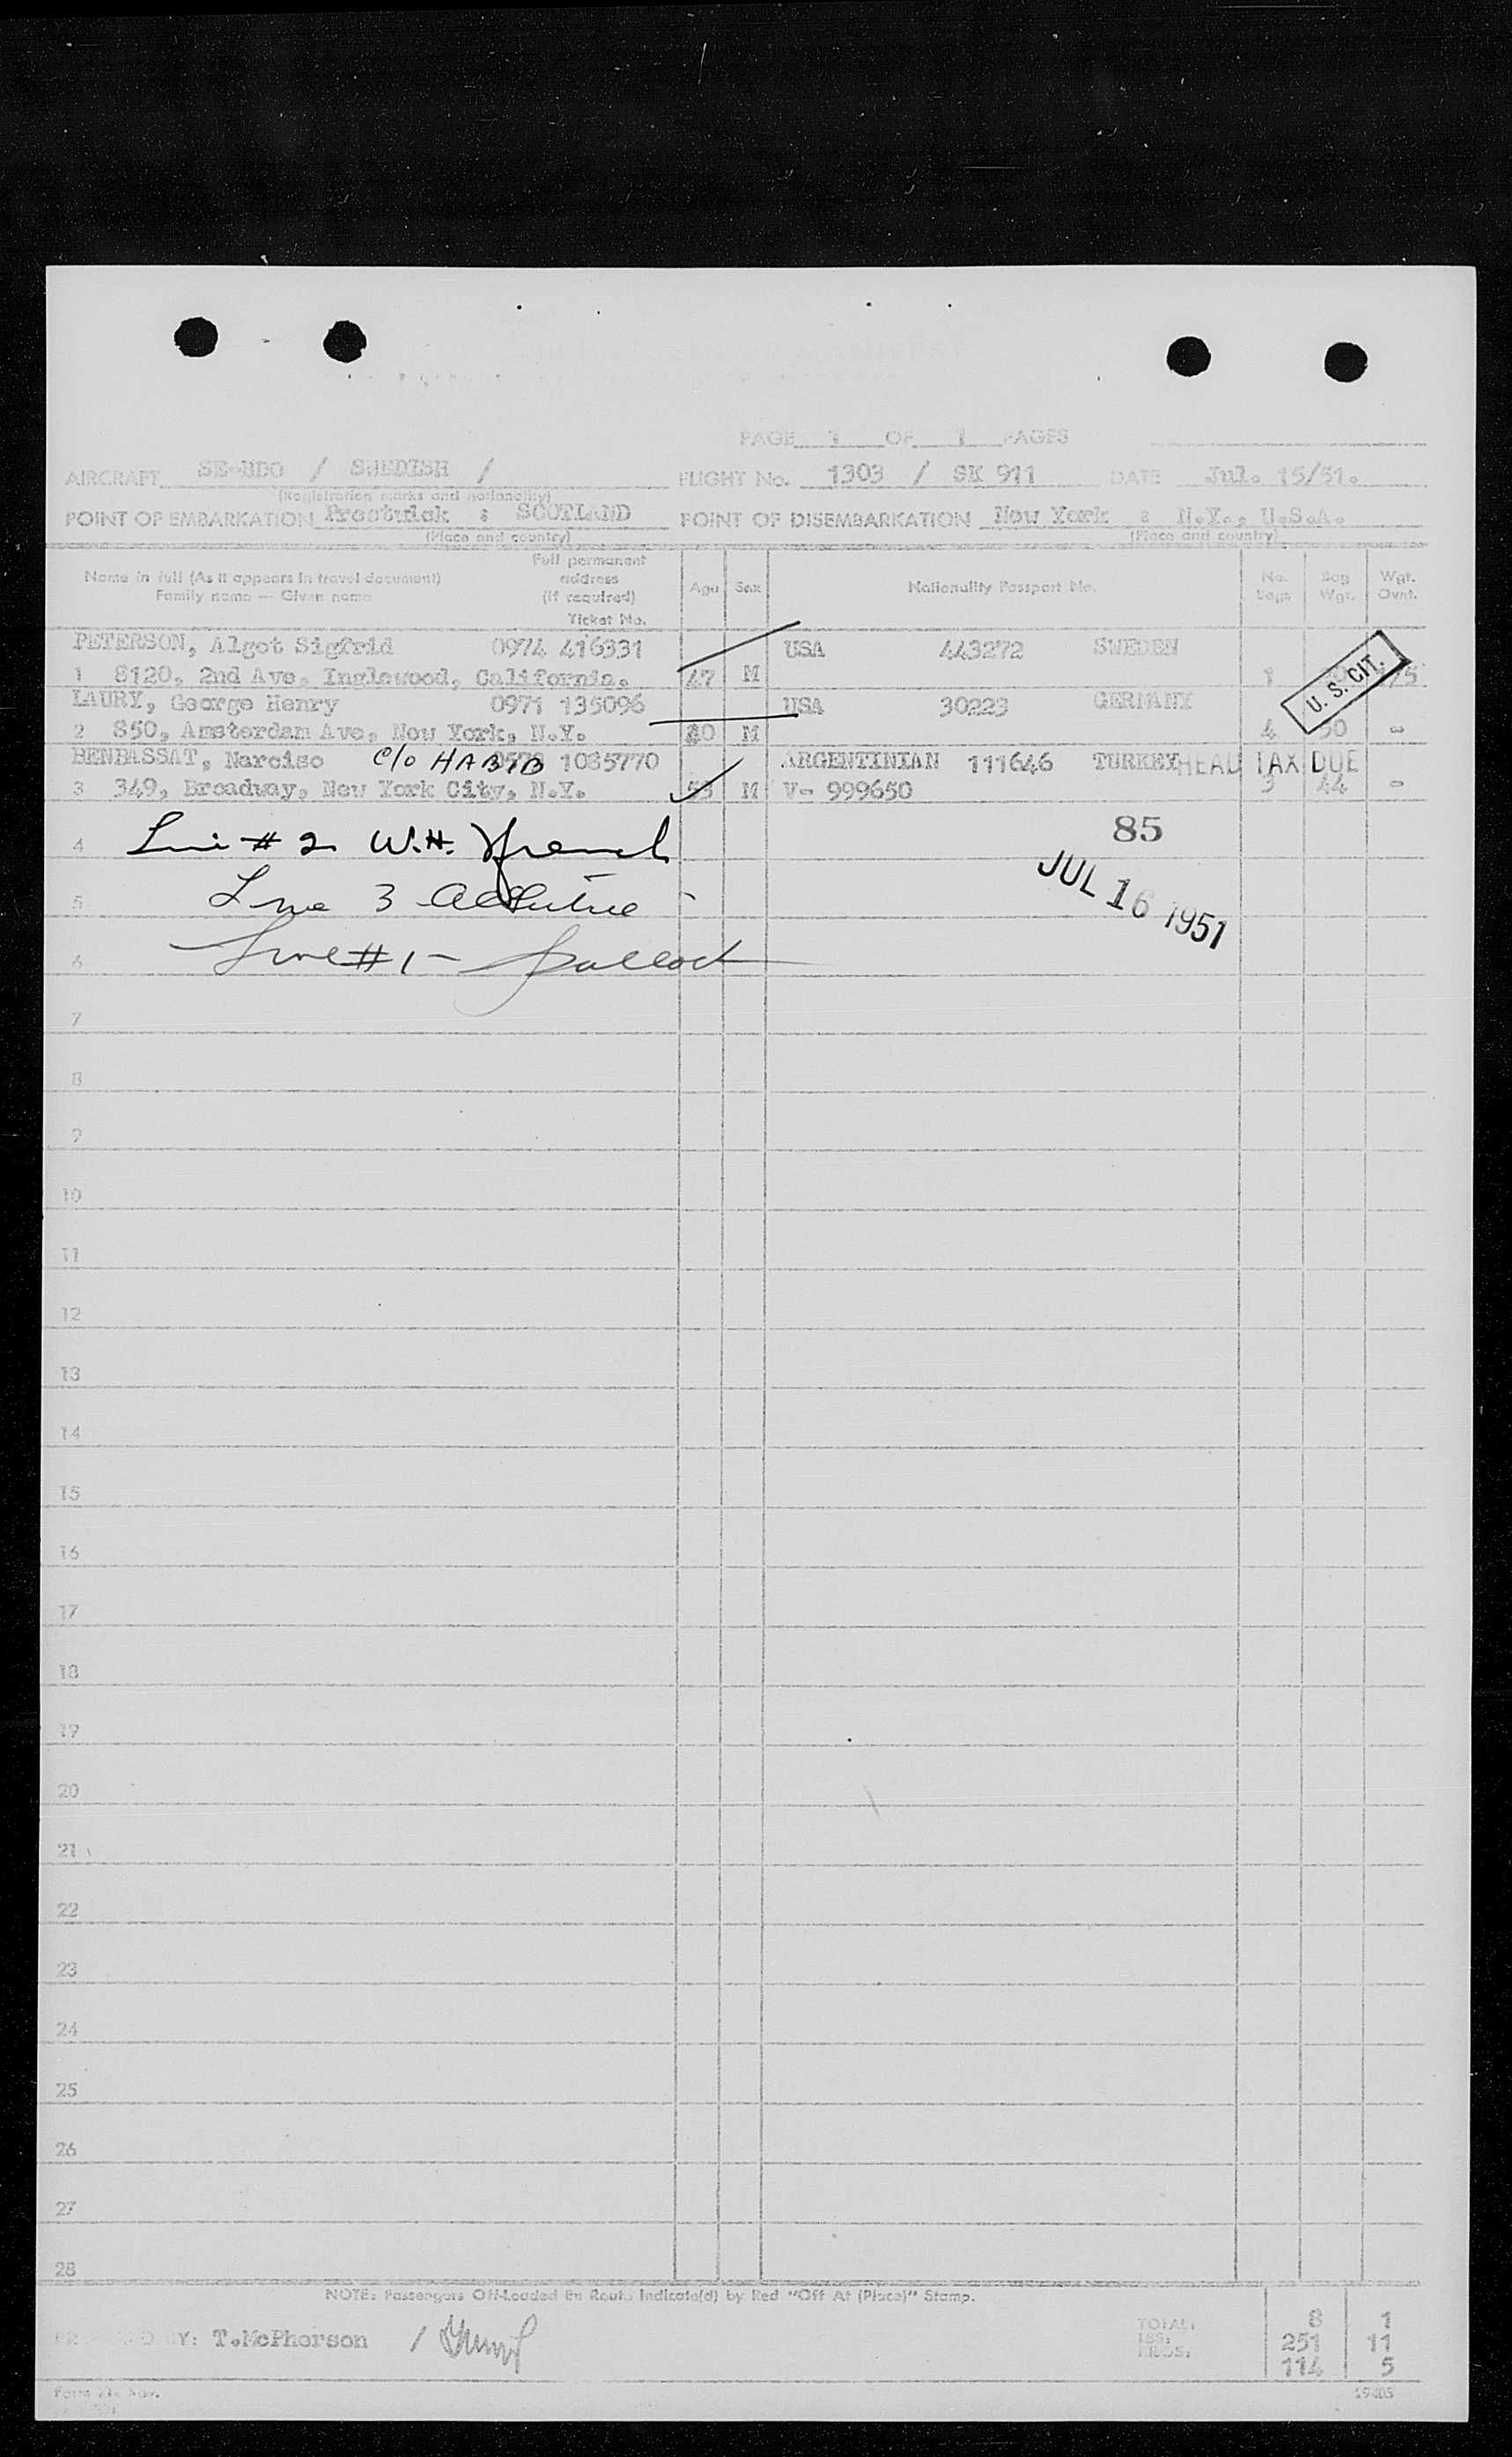 PAGE 1 OF 1 PAGES
AIRCRAFT SE-BDO / SWEDISH / FLIGHT No. 1303 / SK 911 DATE Jul. 15/51.
(Registration marks and nationality)
POINT OF EMBARKATION Prestwick : SCOTLAND POINT OF DISEMBARKATION New York : N.Y., U.S.A.
(Place and country) (Place and country)
Name in full (As it appears in travel document) Full permanent address (If required) Age Sex Nationality Passport No. No. Bags Bag Wgt. Wgt. Ovnt.
Family name — Given name Ticket No.
PETERSON, Algot Sigfrid 0974 416331 USA 443272 SWEDEN
1 8120, 2nd Ave, Inglewood, California. 47 M 1 U. S. CIT.
LAURY, George Henry 0971 135096 USA 30223 GERMANY
2 850, Amsterdam Ave, New York, N.Y. M 4 50 -
BENBASSAT, Narciso C/o HABIB 1085770 ARGENTINIAN 111646 TURKEY HEAD TAX DUE
3 349, Broadway, New York City, N.Y. 53 M V- 999650 3 44 -
4 Line # 2 W.H. French 85
JUL 16 1951
5 Line 3
6 Line # 1 -
7
8
9
10
11
12
13
14
15
16
17
18
19
20
21
22
23
24
25
26
27
28
NOTE: Passengers Off-Loaded En Route Indicate(d) by Red "Off At (Place)" Stamp.
PREPARED BY: T.McPherson / TOTAL: 8 1
LBS. 251 11
KILOS. 114 5
19405